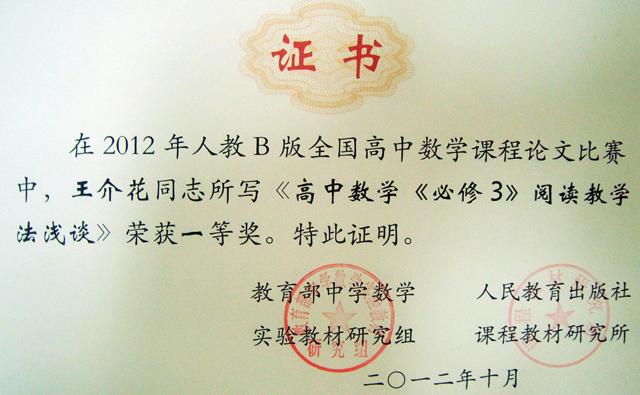 证书
在2012年人教B版全国高中数学课程论文比赛
中，王介花同志所写《高中数学《必修3》阅读教学
法浅谈》荣获一等奖。特此证明。
教育部中学数学 人民教育出版社
实验教材研究组 课程教材研究所
研究组
二〇一二年十月